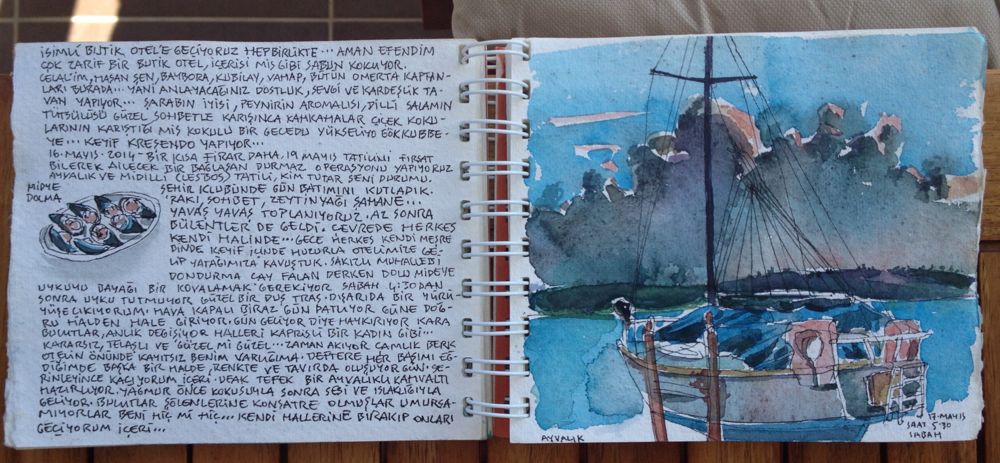 İSİMLİ BUTİK OTEL'E GEÇİYORUZ HEP BİRLİKTE... AMAN EFENDİM
ÇOK ZARİF BİR BUTİK OTEL, İÇERİSİ MİS GİBİ SABUN KOKUYOR.
CELALİM, HASAN ŞEN, BAYBORA, KUBİLAY, VAHAP, BÜTÜN OMERTA KAPTAN-
LARI BURADA... YANİ ANLAYACAĞINIZ DOSTLUK, SEVGİ VE KARDEŞLİK TA-
VAN YAPIYOR... ŞARABIN İYİSİ, PEYNİRİN AROMALISI, DİLLİ SALAMIN
TÜTSÜLÜSÜ GÜZEL SOHBETLE KARIŞINCA KAHKAHALAR ÇİÇEK KOKU-
LARININ KARIŞTIĞI MİS KOKULU BİR GECEDU YÜKSELİYO GÖKKUBBE-
YE... KEYİF KREŞENDO YAPIYOR...
16.MAYIS.2014 - BİR KISA FİRAR DAHA, 19 MAYIS TATİLİNİ FIRSAT
BİLEREK AİLECEK BİR BAĞLASAN DURMAZ OPERASYONU YAPIYORUZ
AYVALIK VE MİDİLLİ (LESBOS) TATİLİ, KİM TUTAR SENİ DURUMU.
MİDYE
DOLMA
ŞEHİR KLUBÜNDE GÜN BATIMINI KUTLADIK.
RAKI, SOHBET, ZEYTİNYAĞI ŞAHANE...
YAVAŞ YAVAŞ TOPLANIYORUZ. AZ SONRA
BÜLENTLER DE GELDİ. ÇEVREDE HERKES
KENDİ HALİNDE... GECE HERKES KENDİ MEŞRE
DİNDE KEYİF İÇİNDE HUZURLA OTELİMİZE GE-
LİP YATAĞIMIZA KAVUŞTUK. SAKIZLI MUHALLEBİ
DONDURMA ÇAY FALAN DERKEN DOLU MİDEYE
UYKUYU BAYAĞI BİR KOVALAMAK GEREKİYOR SABAH 4:30DAN
SONRA UYKU TUTMUYOR GÜZEL BİR DUŞ TRAŞ. DIŞARIDA BİR YÜRÜ-
YÜŞE ÇIKIYORUM. HAVA KAPALI BİRAZ GÜN PATLIYOR GÜNE DOĞ-
RU HALDEN HALE GİRİYOR. GÜN GELİYOR DİYE HAYKIRIYOR KARA
BULUTLAR, ANLIK DEĞİŞİYOR HALLERİ KAPRİSLİ BİR KADIN GİBİ...
KARARSIZ, TELAŞLI VE GÜZEL Mİ GÜZEL... ZAMAN AKIYOR ÇAMLIK BERK
OTELİN ÖNÜNDE KAYITSIZ BENİM VARLIĞIMA. DEFTERE HER BAŞIMI EĞ-
DİĞİMDE BAŞKA BİR HALDE, RENKTE VE TAVIRDA OLUŞUYOR GÜN. SE-
RİNLEYİNCE KAÇIYORUM İÇERİ. UFAK TEFEK BİR AYVALIKLI KAHVALTI
HAZIRLIYOR. YAĞMUR ÖNCE KOKUSUYLA SONRA SESİ VE ISLAKLIĞIYLA
GELİYOR. BULUTLAR ŞÖLENLERİNE KONSANTRE OLMUŞLAR UMURSA-
MIYORLAR BENİ HİÇ Mİ HİÇ... KENDİ HALLERİNE BIRAKIP ONLARI
GEÇİYORUM İÇERİ...
AYVALIK
17.MAYIS
SAAT 5:30
SABAH